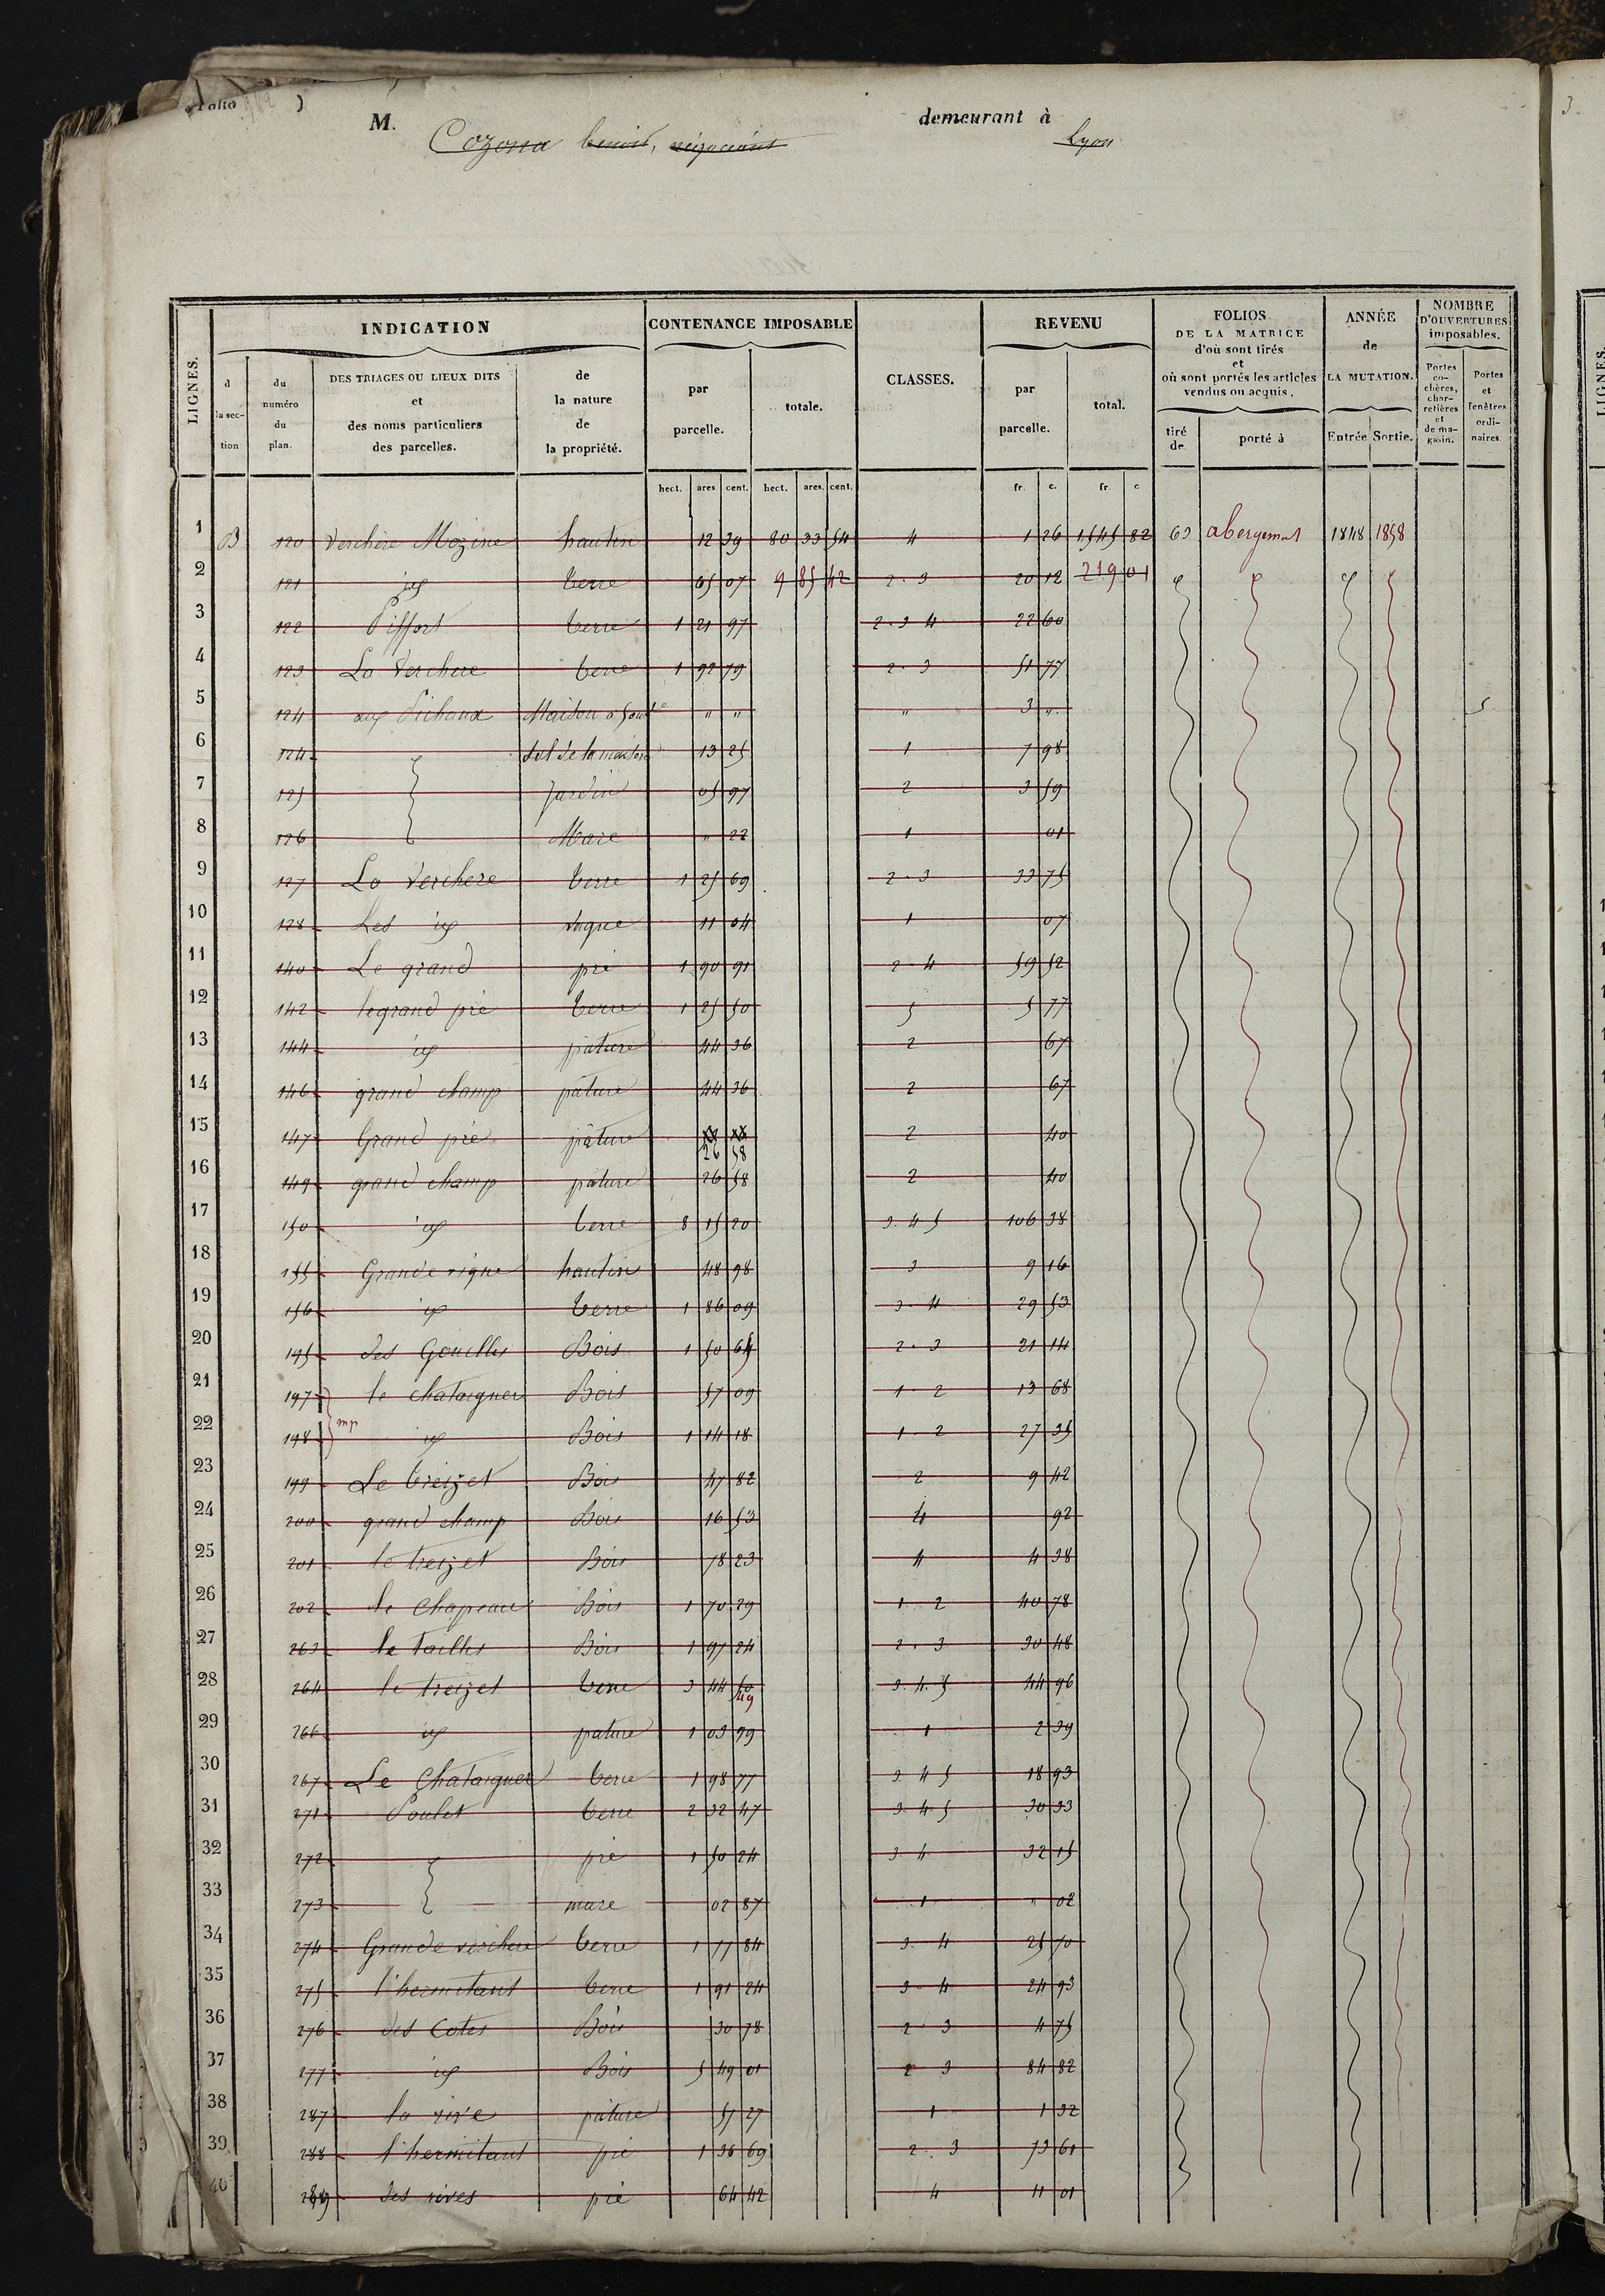 Folio )
M. demeurant à
benoit, négociant Lyon
LIGNES. INDICATION CONTENANCE IMPOSABLE CLASSES. REVENU FOLIOS DE LA MATRICE d'où sont tirés et où sont portés les articles vendus ou acquis. ANNÉE de LA MUTATION. NOMBRE D'OUVERTURES imposables.
d la section du numéro du plan. DES TRIAGES OU LIEUX DITS et des noms particuliers des parcelles. de la nature de la propriété. par parcelle. totale. par parcelle. total. tiré de porté à Entrée Sortie. Portes cochères, charretières et de magasin. Portes et fenêtres ordinaires.
hect. ares cent. hect. ares. cent. fr. c. fr. c
1 B 120 Verchère Mozine hautin 12 39 80 33 54 4 1 26 1545 82 63 abergement 1848 1858
2 121 id terre 65 07 9 85 42 2.3 20 12 219 01
3 122 Piffort terre 1 21 97 2.3 4 22 60
4 123 La Verchere terre 1 92 79 2.3 51 77
5 124 aux Pichaux Maison " " " 3 " 5
6 124 sol de la maison 13 25 1 7 98
7 125 jardin 05 97 2 3 59
8 126 Mare " 22 1 01
9 127 La Verchere terre 1 25 69 2.3 33 75
10 128 Les id vigne 11 04 1 07
11 140 Le grand pré 1 90 91 2-4 59 52
12 142 le grand pré terre 1 25 50 5 5 77
13 144 id pâture 44 36 2 67
14 146 grand champ pâture 44 36 2 67
15 147 Grand pré pâture 26 58 2 40
16 149 grand champ pâture 26 58 2 40
17 150 id terre 8 15 20 3.4 5 106 38
18 155 Grande vigne hautin 48 98 3 9 16
19 156 id terre 1 86 09 3-4 29 53
20 195 des Gouilles Bois 1 50 65 2.3 21 14
21 197 le chataignier Bois 57 09 1-2 13 68
22 198 mp id Bois 1 14 18 1-2 27 35
23 199 Le treizet Bois 47 82 2 9 42
24 200 grand champ Bois 16 53 4 92
25 201 le treizet Bois 78 23 4 4 38
26 202 le Chapeau Bois 1 70 29 1.2 40 78
27 263 le taillis Bois 1 97 24 2.3 30 48
28 264 le treizet terre 3 44 50 49 3.4.5 44 96
29 266 id pature 1 03 99 1 2 39
30 267 Le Chataignier terre 1 98 77 3.4 5 18 93
31 271 Poulet terre 2 32 47 3.4.5 30 33
32 272 pré 1 50 24 3.4 32 15
33 273 mare 02 87 1 " 02
34 274 Grande verchere terre 1 77 84 3.4 25 70
35 275 l'hermitant terre 1 91 24 3-4 24 93
36 276 des Cotes Bois 30 78 2 3 4 75
37 277 id Bois 5 49 01 2 3 84 82
38 287 la rive pâture 57 27 1 1 32
39 288 l'hermitant pré 1 36 69 2.3 73 61
40 289 des rives pré 64 42 4 11 01
LIGNES.